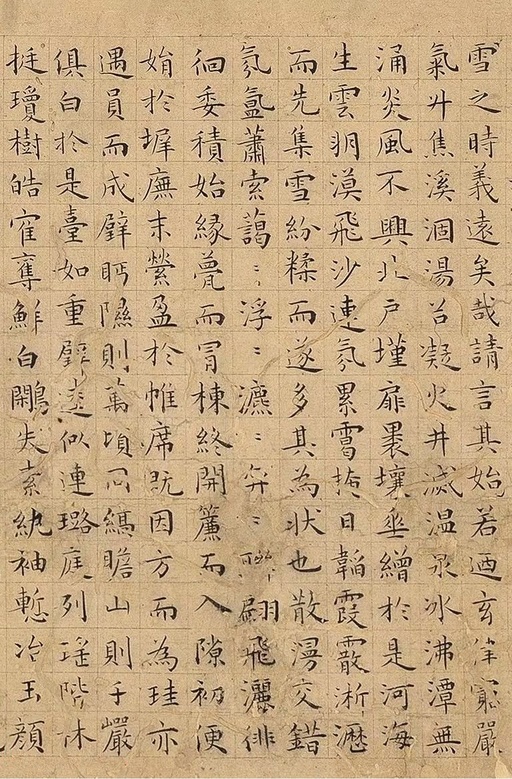 雪之時義遠矣哉請言其始若迺玄律窮嚴
氣升焦溪涸湯谷凝火井滅温泉冰沸潭無
涌炎風不興北戶墐扉裸壤垂繒於是河海
生雲朔漠飛沙連氛累靄掩日韜霞霰淅瀝
而先集雪紛糅而遂多其為狀也散漫交錯
氛氳蕭索藹〻浮〻瀌〻弈〻聯翩飛灑徘
徊委積始緣甍而冒棟終開簾而入隙初便
娟於墀廡末縈盈於帷席既因方而為珪亦
遇員而成璧眄隰則萬頃同縞瞻山則千巖
俱白於是臺如重璧逵似連璐庭列瑤階林
挺瓊樹皓寉奪鮮白鷴失素紈袖慙冶玉顏